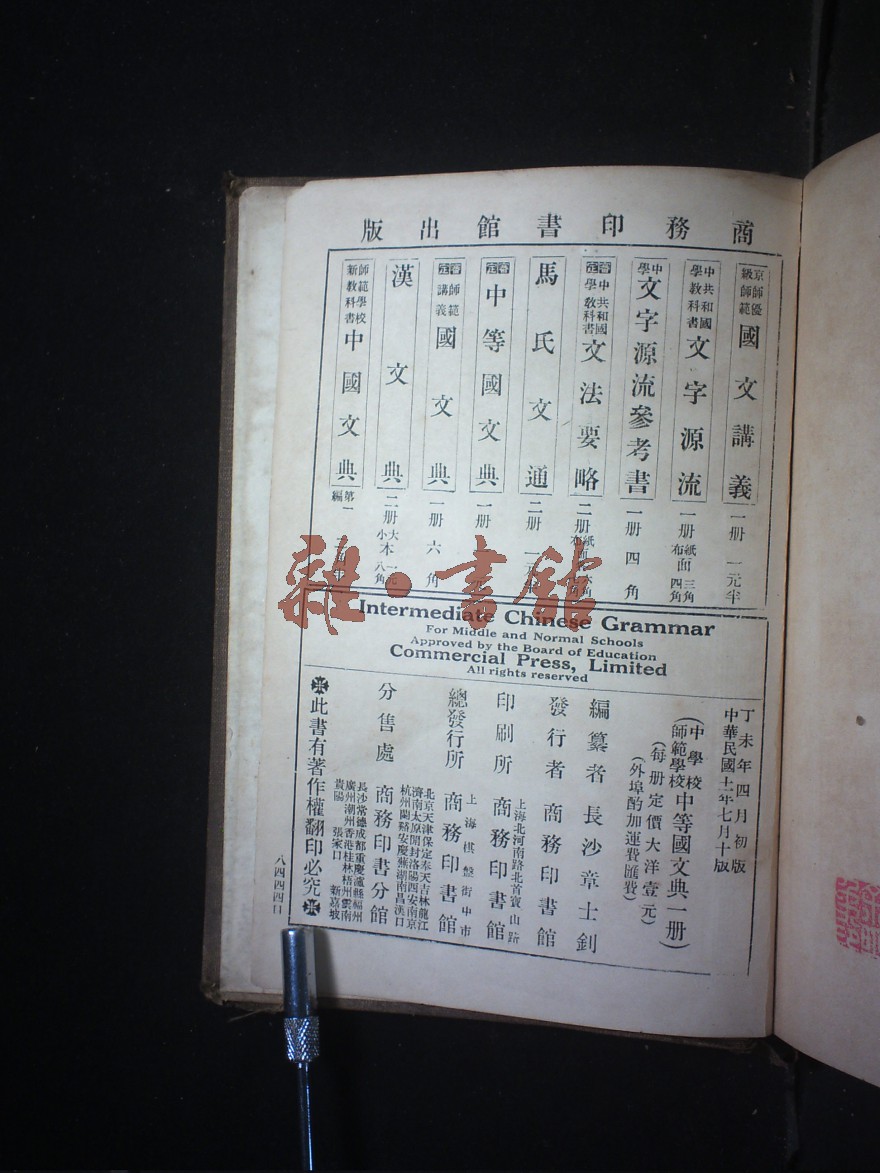 商務印書館出版
京師優級師範 國文講義 一册 一元半
中學共和國教科書 文字源流 一册 紙面三角 布面四角
中學 文字源流參考書 一册 四角
審定 中學共和國教科書 文法要略 二册
馬氏文通 二册
審定 中等國文典 一册
審定 師範講義 國文典 一册 六角
漢文典 二册 大本一元 小本八角
師範學校新教科書 中國文典 第一編
雜·書館
Intermediate Chinese Grammar
For Middle and Normal Schools
Approved by the Board of Education
Commercial Press, Limited
All rights reserved
丁未年四月初版
中華民國十一年七月十版
(中學校師範學校 中等國文典一册)
(每册定價大洋壹元)
(外埠酌加運費匯費)
編纂者 長沙章士釗
發行者 商務印書館
上海北河南路北首寶山路
印刷所 商務印書館
上海棋盤街中市
總發行所 商務印書館
北京天津保定奉天吉林龍江
濟南太原開封洛陽西安南京
杭州蘭谿安慶蕪湖南昌漢口
分售處 商務印書分館
長沙常德成都重慶瀘縣福州
廣州潮州香港桂林梧州雲南
貴陽 張家口 新嘉坡
此書有著作權翻印必究
八四四四口